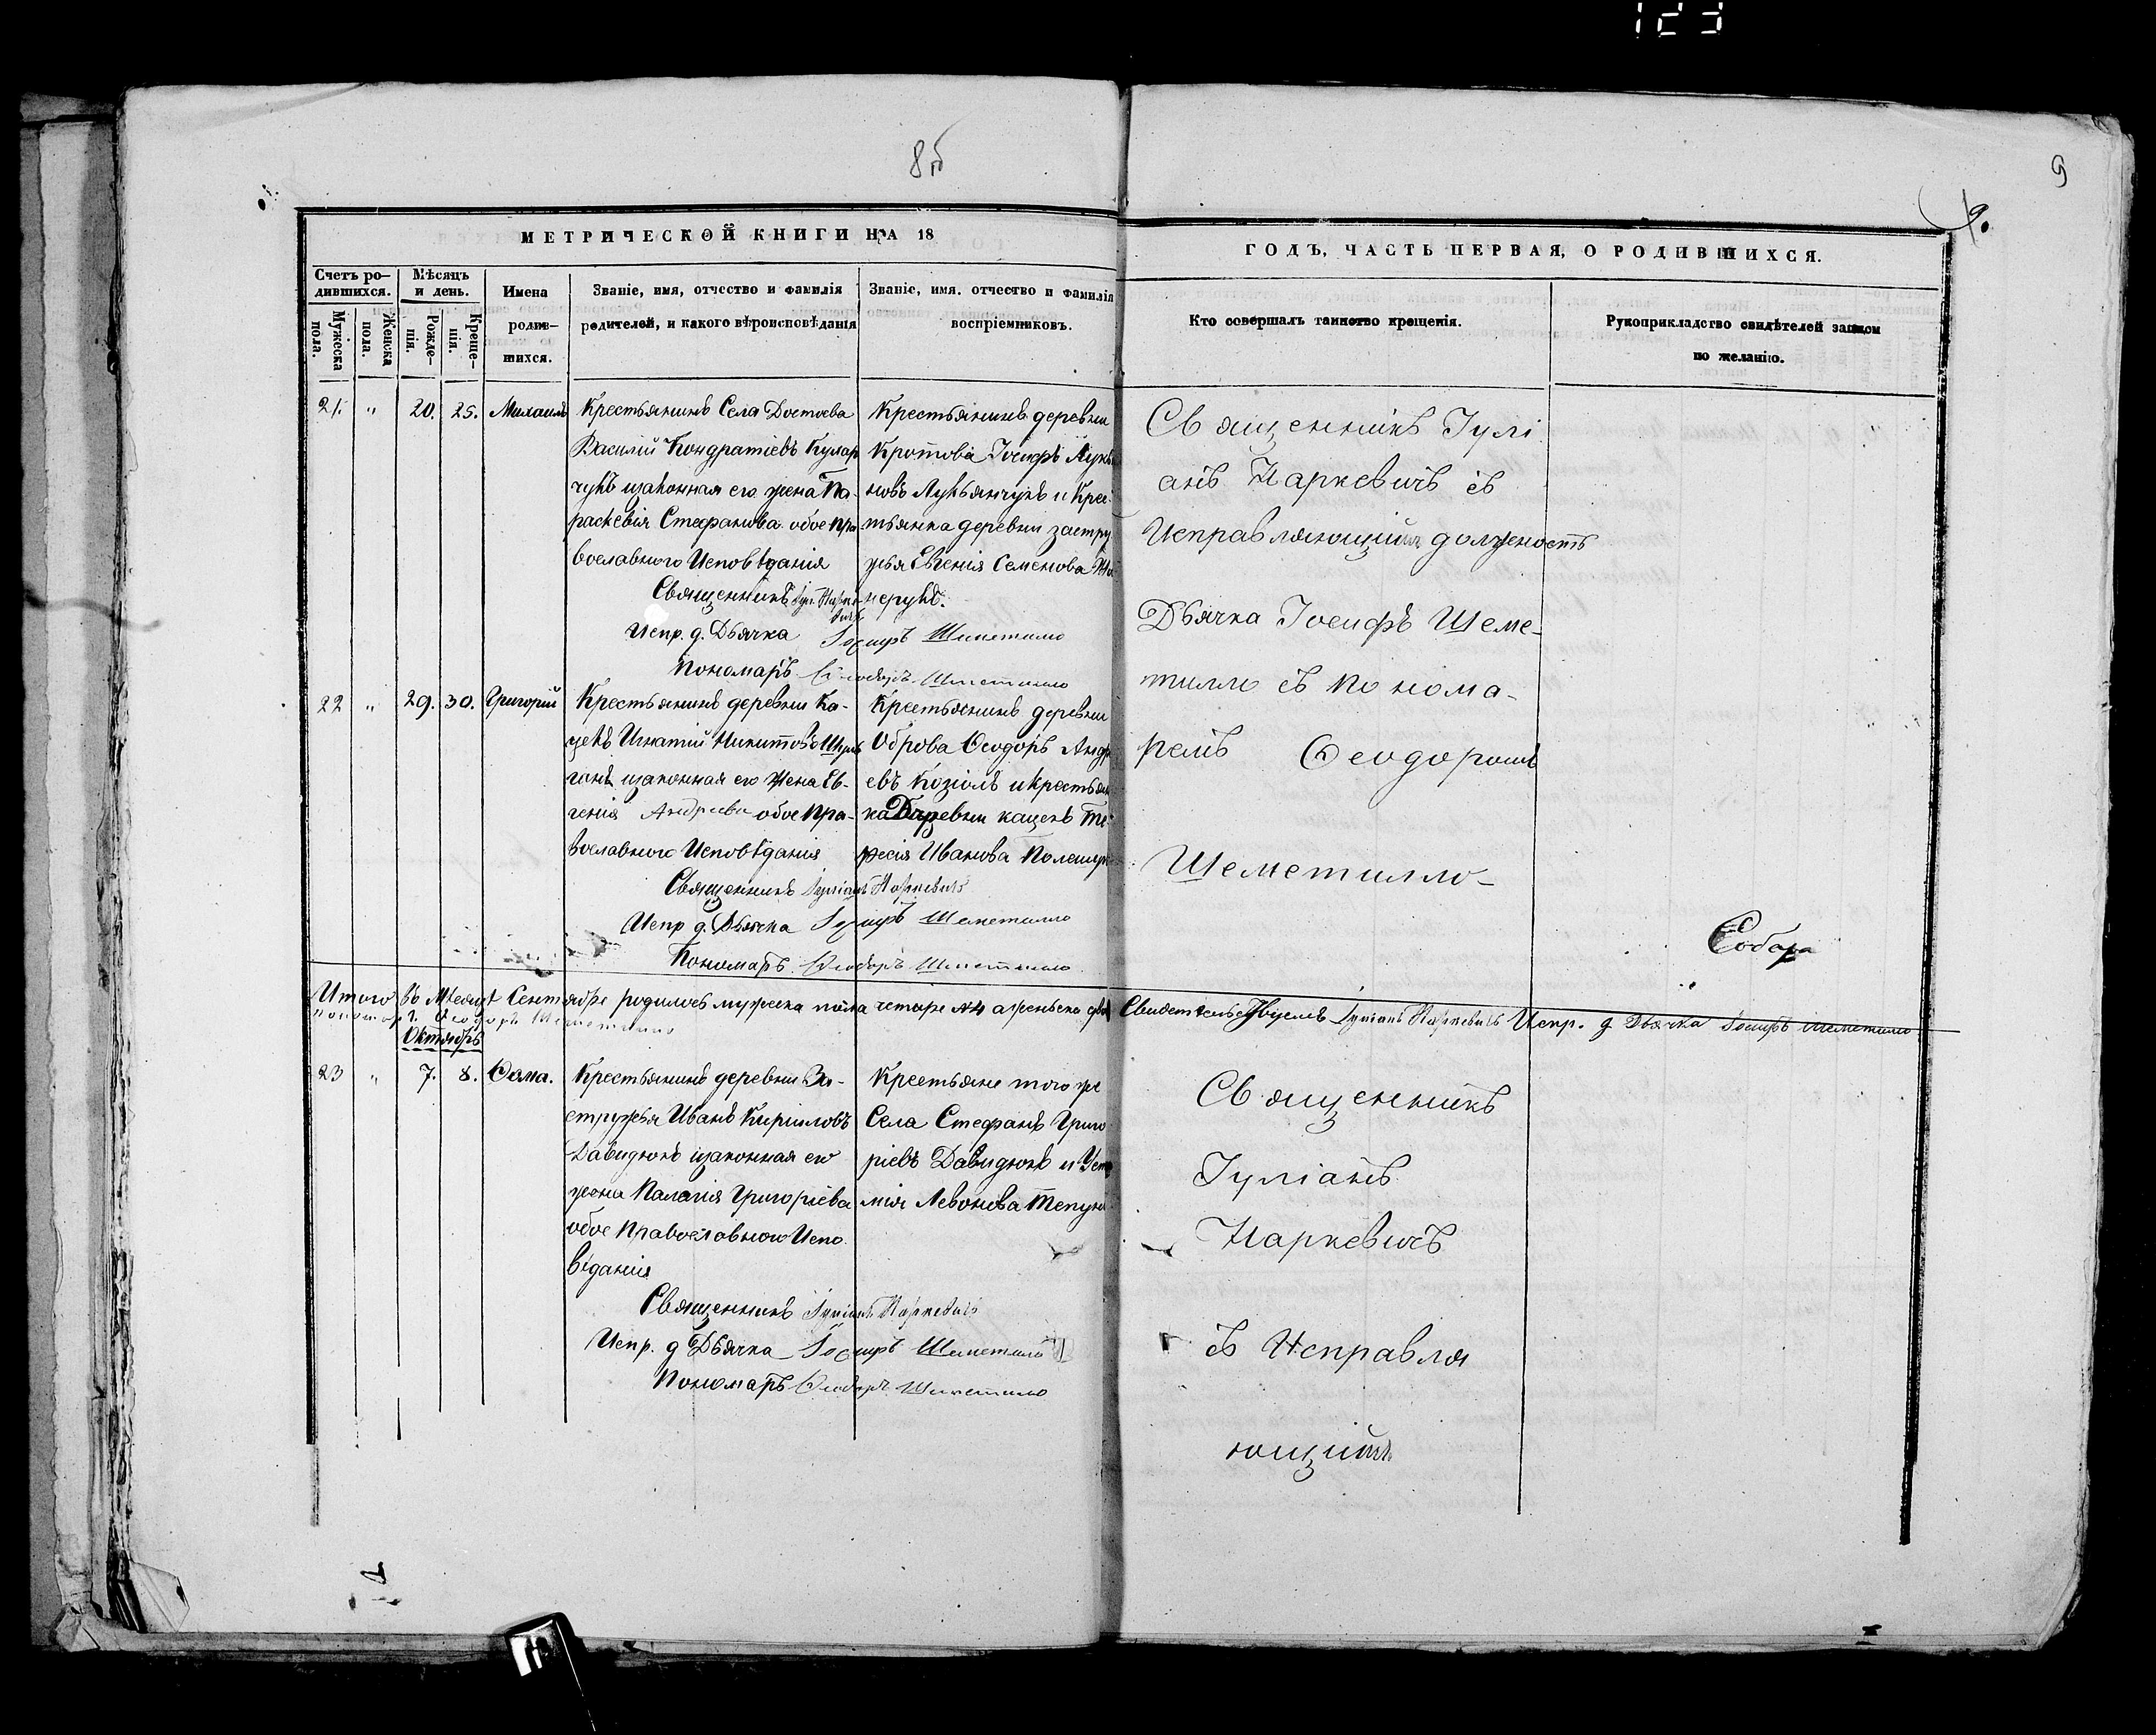 123
8об
9
9.
МЕТРИЧЕСКОЙ КНИГИ НА 18
ГОДЪ, ЧАСТЬ ПЕРВАЯ, О РОДИВШИХСЯ.
Счетъ ро-
дившихся.
Мужеска
пола.
Женска
пола.
Мѣсяцъ
и день.
Рожде-
нія.
Креще-
нія.
Имена
родив-
шихся.
Званіе, имя, отчество и фамилія
родителей, и какого вѣроисповѣданія
Званіе, имя. отчество и фамилія
воспріемниковъ.
Кто совершалъ таинство крещенія.
Рукоприкладство свидѣтелей записи
по желанію.
21. " 20. 25. Михаилъ
Крестьянинъ Села Достоева
Василій Кондратіевъ
чукъ изаконная его жена Па-
раскевія Стефанова обое пра
вославного Исповѣданія
Священникъ
Испр. д. Дьячка Іосифъ Шеметилло
Пономарь Ѳеодоръ Шеметилло
Крестьянинъ деревни
Кротова Іосифъ Лукья
новъ Лукьянчукъ и Крес
тьянка деревни застру
жья Евгенія Семенова
нерукъ.
Священникъ Іулі
анъ Наркевичъ съ
Исправляющимъ должность
Дьячка Іосифъ Шеме-
тилло съ Понома-
ремъ Ѳеодоромъ
Шеметилло-
22 " 29. 30. Григорій
Крестьянинъ деревни Ка-
цекъ Игнатій Никитовъ
ганъ изаконная его жена Ев-
генія Андреева обое Пра-
вославного Исповѣданія
Священникъ Іуліанъ Наркевичъ
Испр д. Дьячка Іосифъ Шеметилло
Пономарь Ѳеодоръ Шеметилло
Крестьянинъ деревни
Оброва Ѳеодоръ Андре
евъ Козіолъ и крестьян
ка Деревни кацекъ
Иванова
Собора
Итого въ Мѣсяцѣ Сентябре родилось мужеска пола четыре №4 аженьска
Іуліанъ Наркевичъ Испр. д Дьячка Іосифъ Шеметилло
пономарь Ѳеодоръ Шеметилло
Октябрь
23 " 7. 8. Ѳома.
Крестьянинъ деревни За-
стружья Иванъ Кириловъ
Давидюкъ изаконная его
жена Палагія Григоріева
обое Православного Испо
вѣданія
Священникъ Іуліанъ Наркевичъ
Испр. д Дьячка Іосифъ Шеметилло
Пономарь Ѳеодоръ Шеметилло
Крестьяне того же
Села Стефанъ Григо
ріевъ Давидюкъ и
Левонова
Священникъ
Іуліанъ
Наркевичъ
съ Исправля
ющимъ